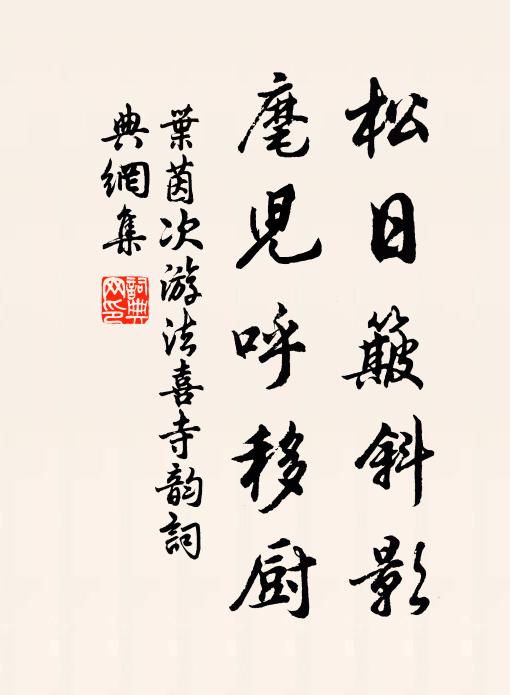 松日簸斜影
麾児呼移厨
葉茵次游法喜寺韵詞
典網集
詞典网印